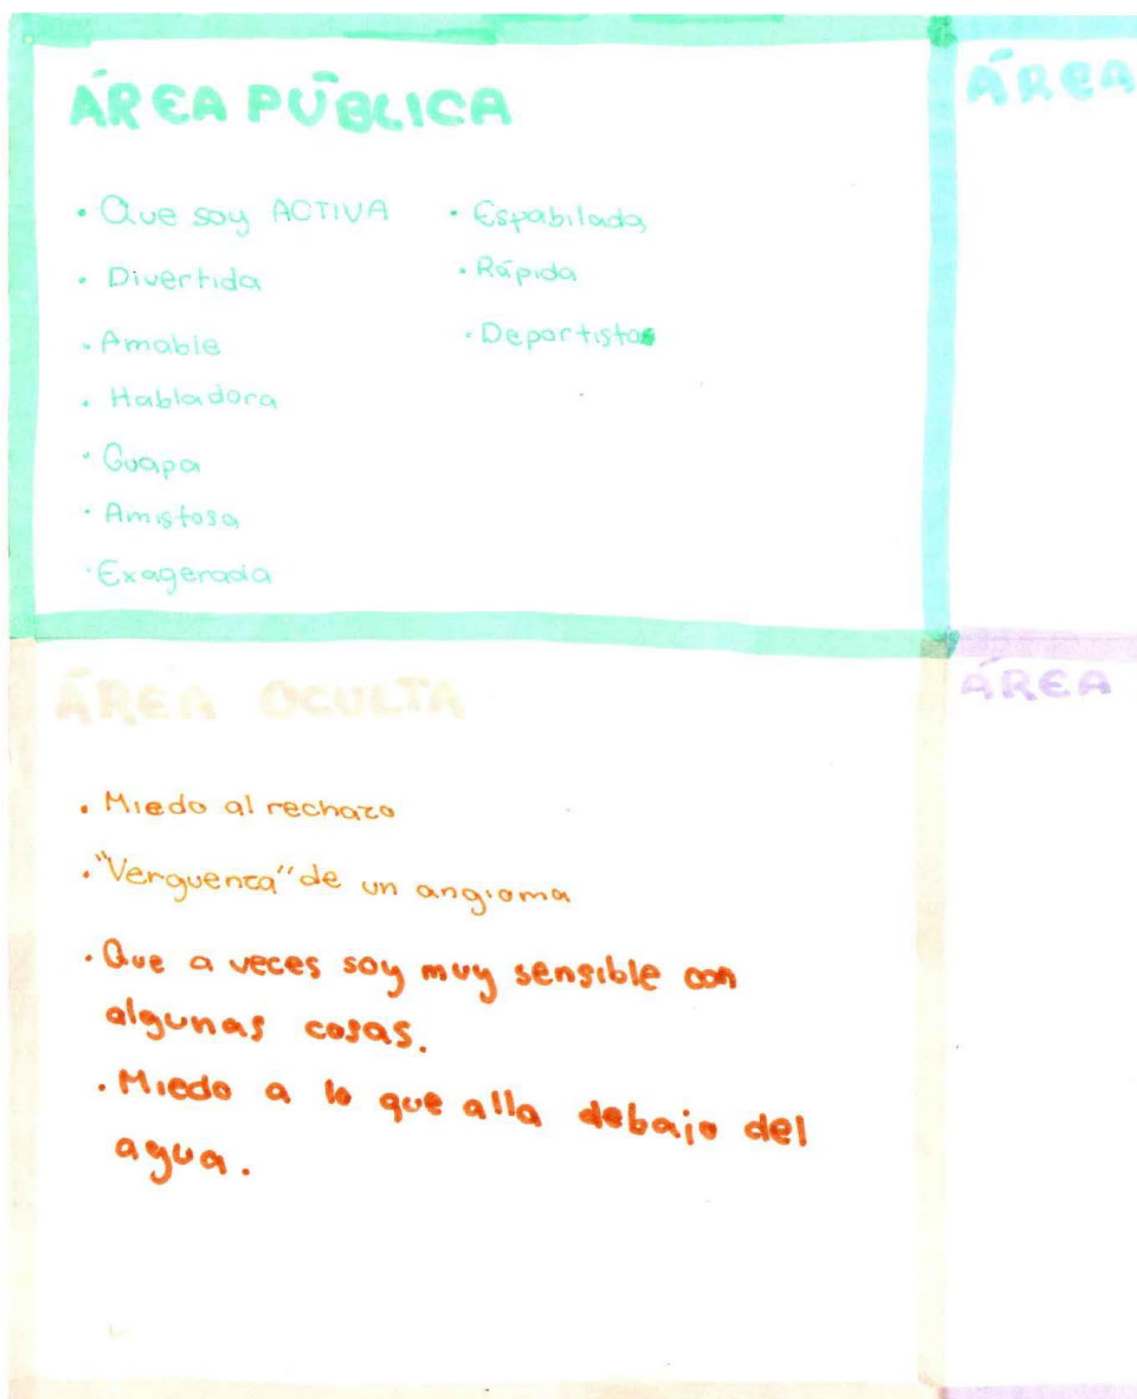 ÁREA PÚBLICA
· Que soy ACTIVA
· Divertida
· Amable
· Habladora
· Guapa
· Amistosa
· Exagerada
· Espabilada
· Rápida
· Deportista
ÁREA
ÁREA OCULTA
· Miedo al rechazo
· "Verguenza" de un angioma
· Que a veces soy muy sensible con
algunas cosas.
· Miedo a lo que alla debajo del
agua.
ÁREA